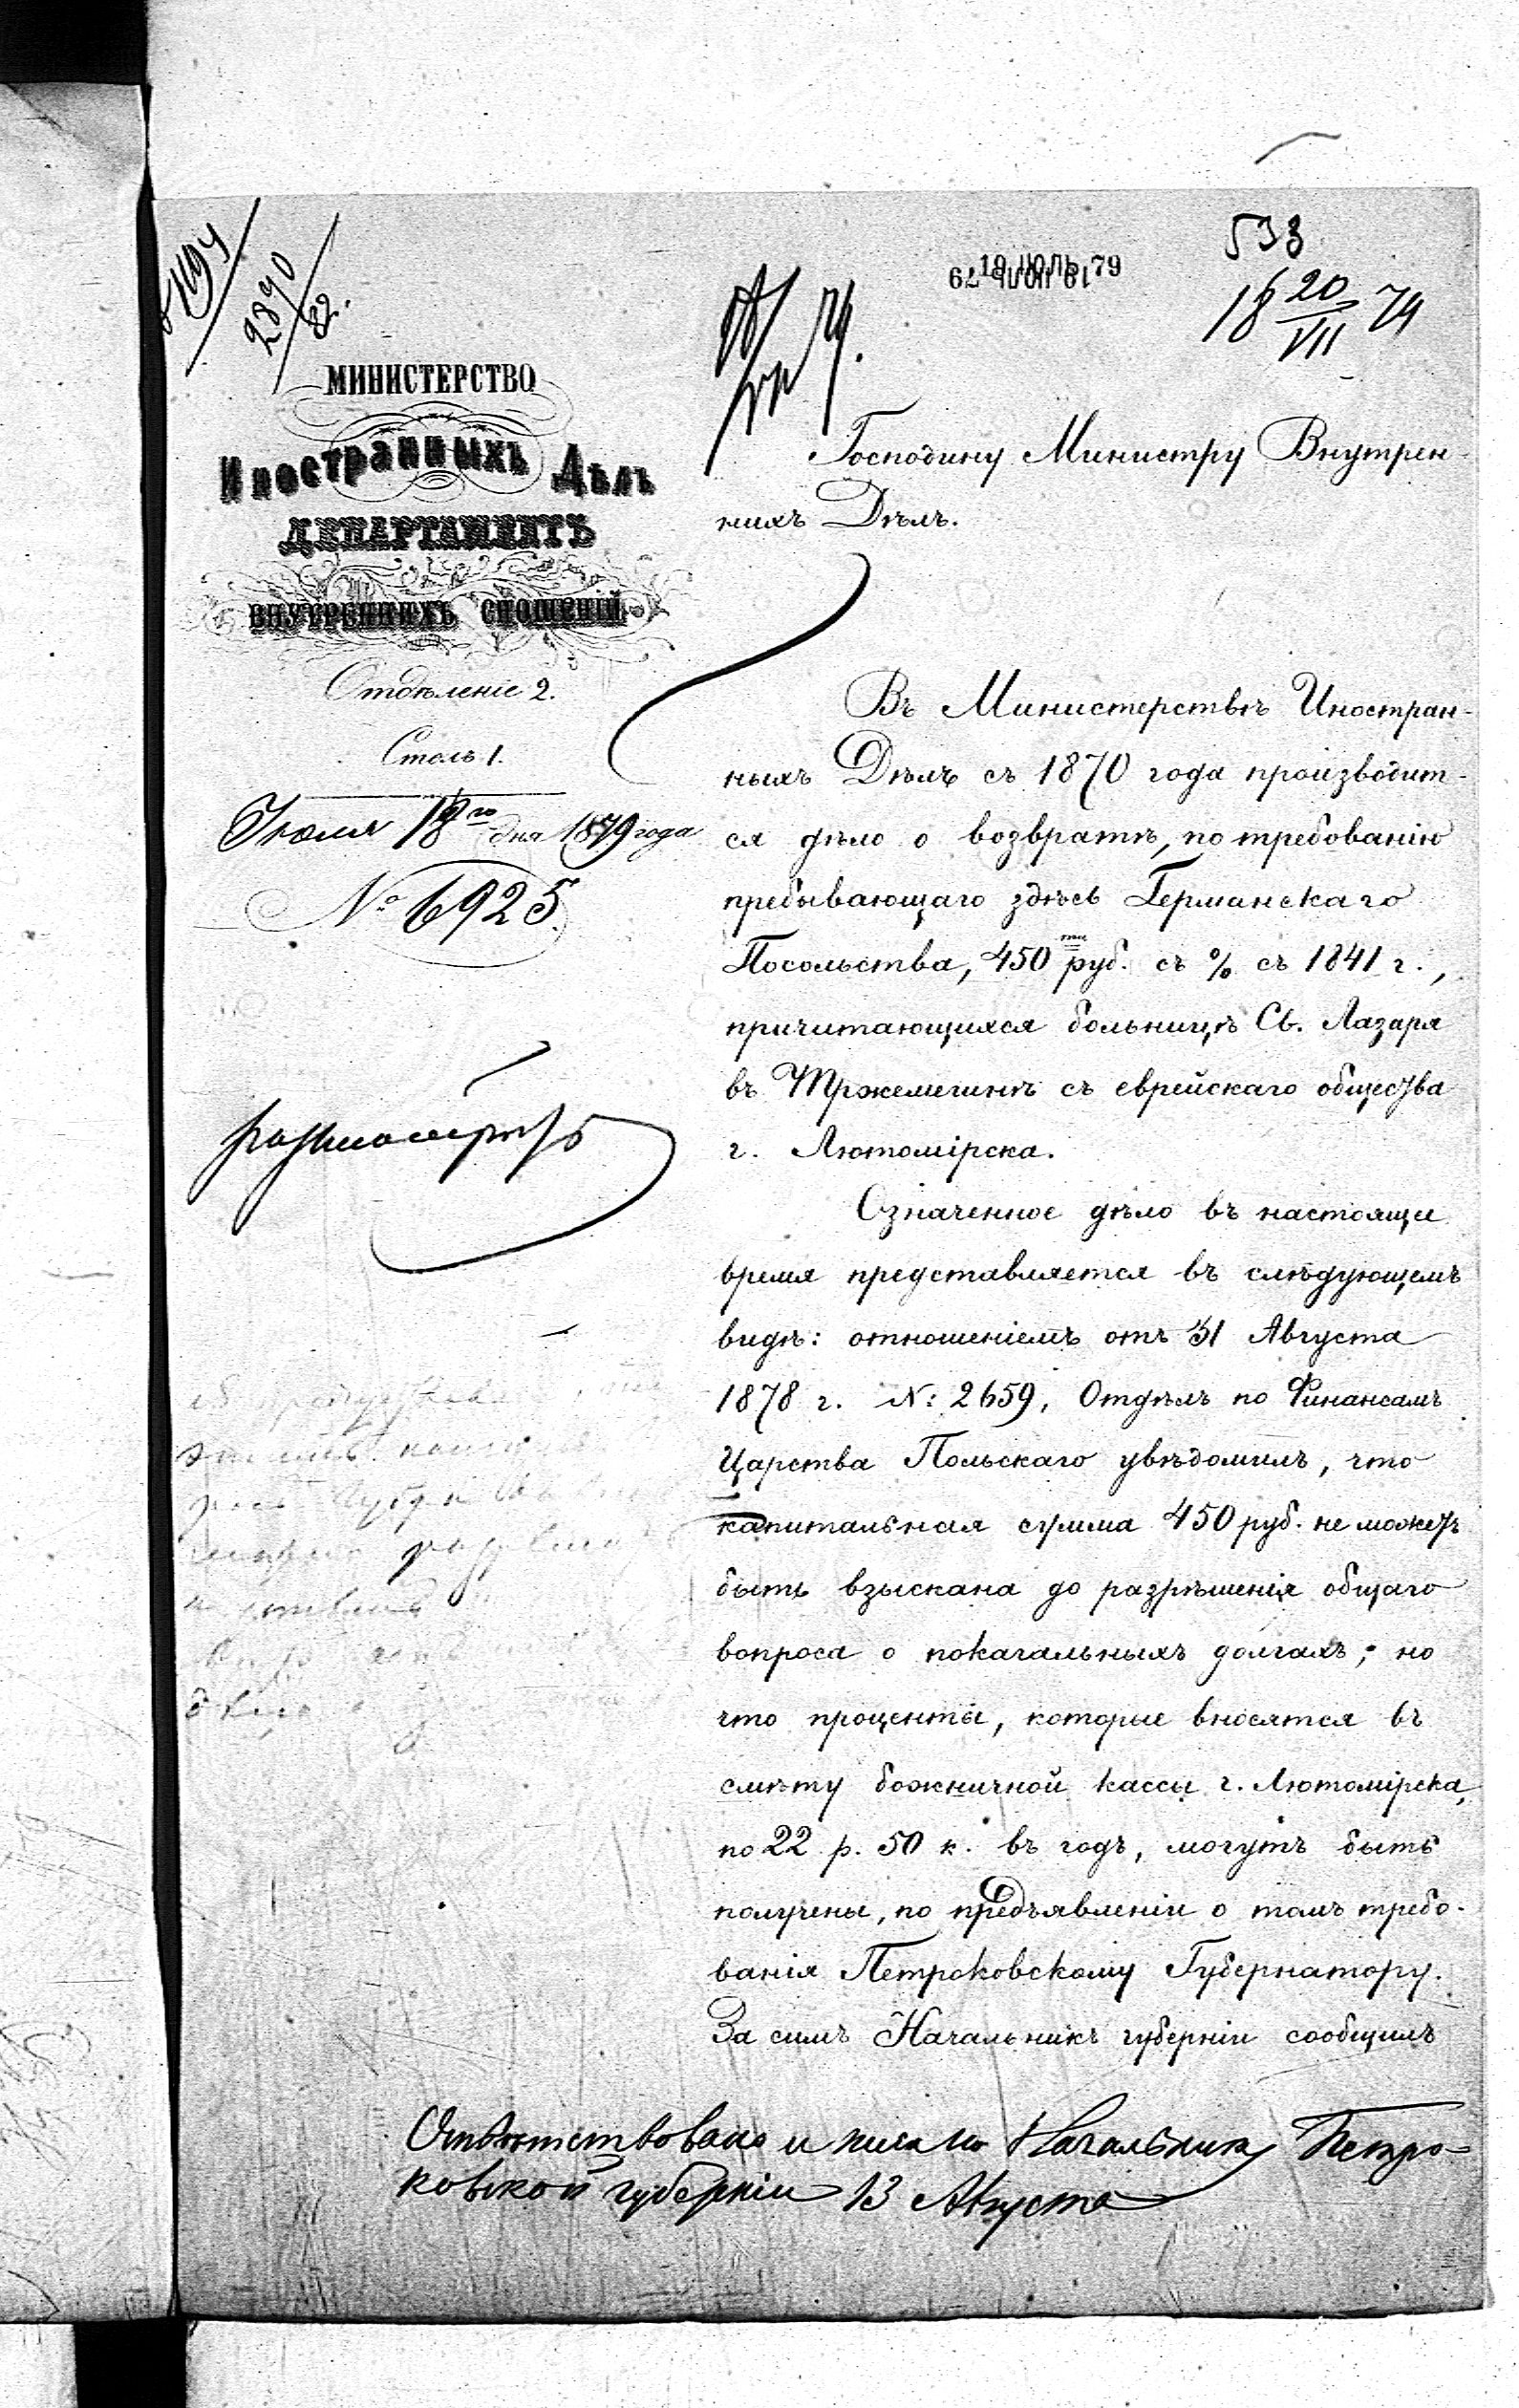 533
19 ІЮЛЬ 79
18 20/VII 79
2870/82.
МИНИСТЕРСТВО
Иностранныхъ Дѣлъ
ДЕПАРТАМЕНТЪ
ВНУТРЕННИХЪ СНОШЕНІЙ
Отдѣленіе 2.
Столъ 1.
Іюля 18го дня 1879 года
№ 6925.
Господину Министру Внутрен-
нихъ Дѣлъ.
Въ Министерствѣ Иностран-
ныхъ Дѣлъ съ 1870 года производит-
ся дѣло о возвратѣ, по требованію
пребывающаго здѣсь Германскаго
Посольства, 450 руб. съ % съ 1841 г.,
причитающихся больницѣ Св. Лазаря
въ Тржемешнѣ съ еврейскаго общества
г. Лютомірска.
Означенное дѣло въ настоящее
время представляется въ слѣдующемъ
видѣ: отношеніемъ отъ 31 Августа
1878 г. №: 2659, Отдѣлъ по Финансамъ
Царства Польскаго увѣдомилъ, что
капитальная сумма 450 руб. не можетъ
быть взыскана до разрѣшенія общаго
вопроса о покагальныхъ долгахъ; но
что проценты, которые вносятся въ
смѣту божничной кассы г. Лютомірска,
по 22 р. 50 к. въ годъ, могутъ быть
получены, по предъявленіи о томъ требо-
ванія Петроковскому Губернатору.
За симъ Начальникъ губерніи сообщилъ
Отвѣтствовано и писано Начальнику Петро-
ковской губерніи 13 Августа